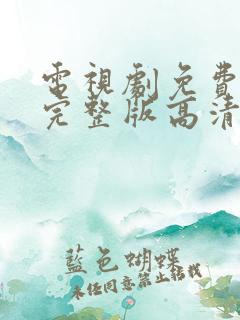 電視劇免費
完整版高清
藍色蝴蝶
未經同意禁止轉載